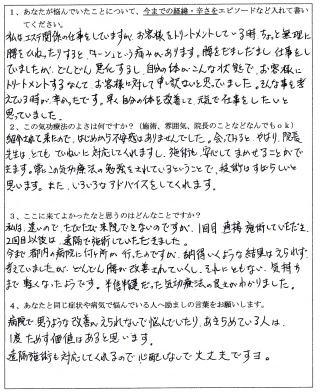 1、あなたが悩んでいたことについて、今までの経緯・辛さをエピソードなど入れて書い
てください。
私はエステ関係の仕事をしていますが、お客様にトリートメントしている時、ちょっと無理に
腰をひねったりすると、ズキーンという痛みがあります。腰をだましだまし仕事を
していましたが、どんどん悪化するし、自分の体がこんな状態で、お客様に
トリートメントするなんて、お客様に対して申し訳ないと思っていました。そんな事を考
えている時が、辛かったです。早く自分の体を改善して、元気で仕事をしたいと
思っていました。
2、この気功療法のよさは何ですか？（施術、雰囲気、院長のことなどなんでもｏｋ）
紹介されて来たので、はじめから不安感はありませんでした。会ってみると、やはり、院長
先生は、とても ていねいに対応してくれますし、施術も、安心して まかせることがで
きます。常にこの気功療法の勉強をされているということで、技術はすばらしいと
思います。また、いろいろなアドバイスをしてくれます。
3、ここに来てよかったなと思うのはどんなことですか？
私は、遠いので、たびたび来院できないのですが、1回目直接施術していただき、
2回目以後は、遠隔で施術していただきました。
今まで都内の病院に何ヶ所か行ったのですが、納得いくような結果はえられず、
考えていましたが、どんどん腰が改善されていくし、それにともない、気持ちが
まで軽くなったようです。半信半疑だった気功療法の良さがわかりました。
4、あなたと同じ症状や病気で悩んでいる人へ励ましの言葉をお願いします。
病院で思うような改善がえられないで悩んでいたり、あきらめている人は、
1度ためす価値はあると思います。
遠隔施術も対応してくれるので心配しないで大丈夫ですヨ。